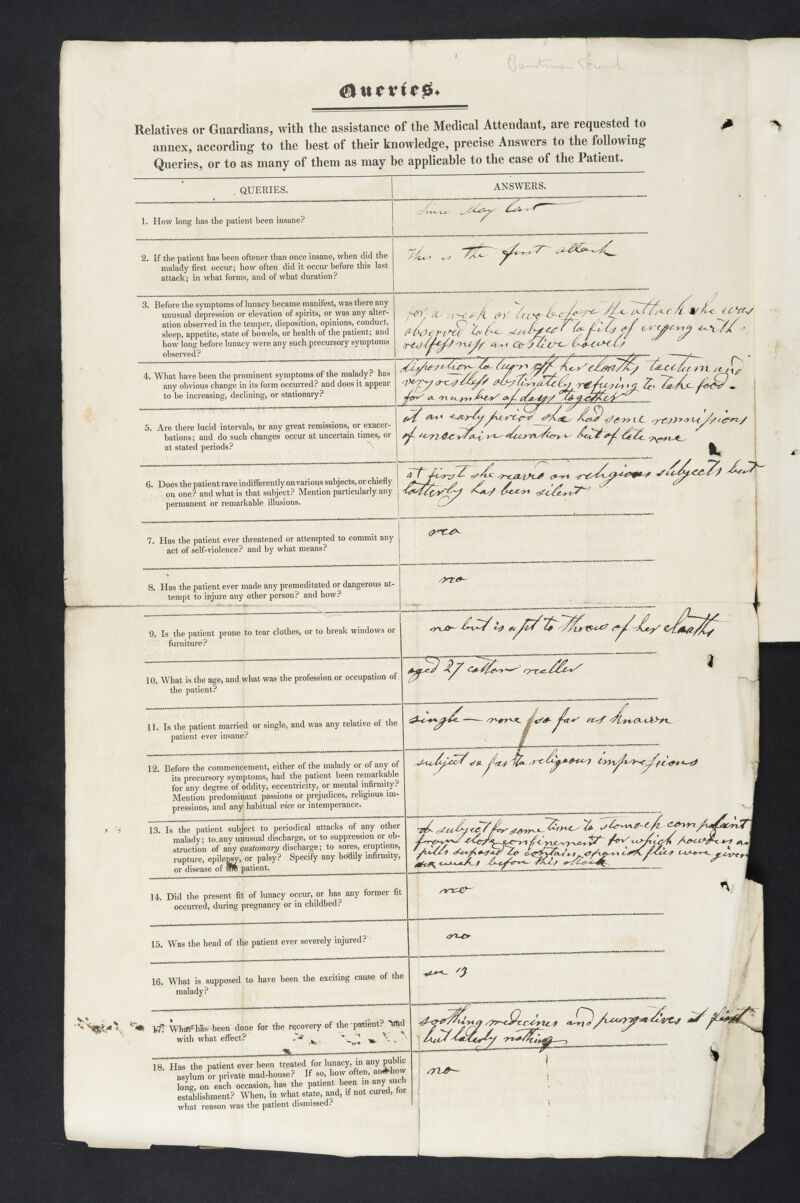 Queries.
Relatives or Guardians, with the assistance of the Medical Attendant, are requested to
annex, according to the best of their knowledge, precise Answers to the following
Queries, or to as many of them as may be applicable to the case of the Patient.
QUERIES.
ANSWERS.
1. How long has the patient been insane?
Since May last
2. If the patient has been oftener than once insane, when did the
malady first occur; how often did it occur before this last
attack; in what forms, and of what duration?
This is the first attack
3. Before the symptoms of lunacy became manifest, was there any
unusual depression or elevation of spirits, or was any alter-
ation observed in the temper, disposition, opinions, conduct,
sleep, appetite, state of bowels, or health of the patient; and
how long before lunacy were any such precursory symptoms
observed?
for a week or two before the attack she was
observed to be subject to fits of crying with
restlessness an costive bowels
4. What have been the prominent symptoms of the malady? has
any obvious change in its form occurred? and does it appear
to be increasing, declining, or stationary?
disposition to turn off her cloaths taciturn and
very restless obstinately refusing to take food -
for a number of days together
5. Are there lucid intervals, or any great remissions, or exacer-
bations; and do such changes occur at uncertain times, or
at stated periods?
at an early period she had some remissions
of uncertain duration but of late none
6. Does the patient rave indifferently on various subjects, or chiefly
on one? and what is that subject? Mention particularly any
permanent or remarkable illusions.
at first she reaved on religious subjects but
latterly has been silent
7. Has the patient ever threatened or attempted to commit any
act of self-violence? and by what means?
no
8. Has the patient ever made any premeditated or dangerous at-
tempt to injure any other person? and how?
no
9. Is the patient prone to tear clothes, or to break windows or
furniture?
no but is apt to throw of her cloaths
10. What is the age, and what was the profession or occupation of
the patient?
aged 27 cotton reeller
11. Is the patient married or single, and was any relative of the
patient ever insane?
single — none so far as known
12. Before the commencement, either of the malady or of any of
its precursory symptoms, had the patient been remarkable
for any degree of oddity, eccentricity, or mental infirmity?
Mention predominant passions or prejudices, religious im-
pressions, and any habitual vice or intemperance.
subject so far to religeous impressions
13. Is the patient subject to periodical attacks of any other
malady; to any unusual discharge, or to suppression or ob-
struction of any customary discharge; to sores, eruptions,
rupture, epilepsy, or palsy? Specify any bodily infirmity,
or disease of the patient.
subject for some time to stomach complaint
from close confinement for which powders an
pills suposed to contain spanish flies were given
six weeks before this attack
14. Did the present fit of lunacy occur, or has any former fit
occurred, during pregnancy or in childbed?
no
15. Was the head of the patient ever severely injured?
no
16. What is supposed to have been the exciting cause of the
malady?
see 13
17. What has been done for the recovery of the patient? and
with what effect?
soothing medecines and purgatives at first
but laterly nothing
18. Has the patient ever been treated for lunacy, in any public
asylum or private mad-house? If so, how often, and how
long, on each occasion, has the patient been in any such
establishment? When, in what state, and, if not cured, for
what reason was the patient dismissed?
no